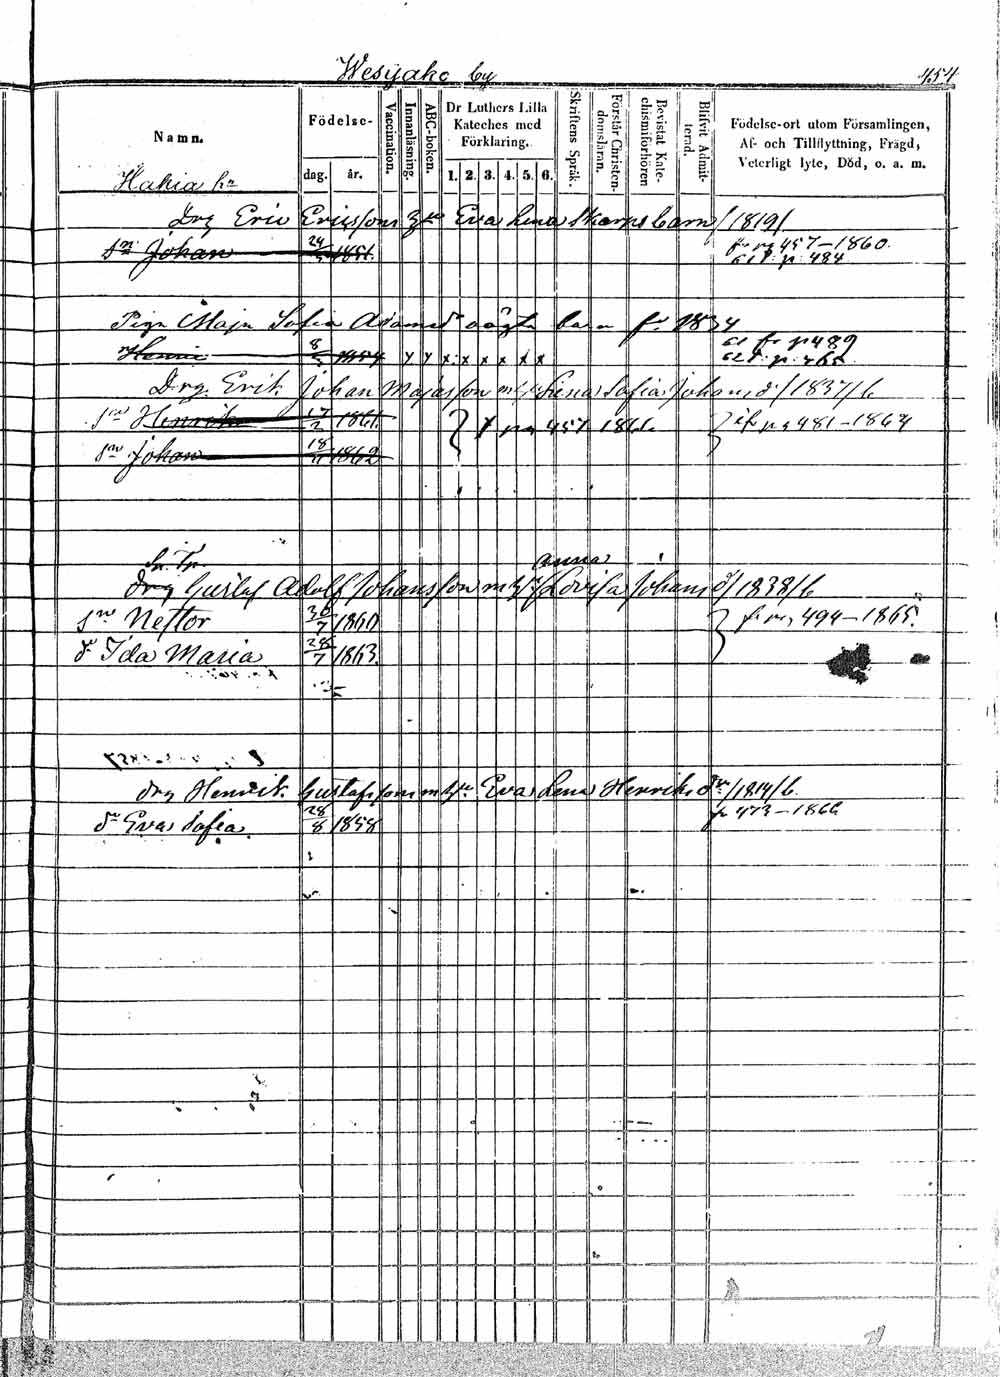 Wesijako by 454
Namn.
Födelse-
dag. år.
Vaccination.
Innanläsning.
ABC-boken.
Dr Luthers Lilla Kateches med Förklaring.
1. 2. 3. 4. 5. 6.
Skriftens Språk.
Förstår Christendomsläran.
Bevistat Katechismiförhören
Blifvit Admitterad.
Födelse-ort utom Församlingen,
Af- och Tillflyttning, Frägd,
Veterligt lyte, Död, o. a. m.
Hakia
Drg Eric Ericsson Eva Lena Skarps barn /1819/
sn Johan 24 1851. 457-1860.
p. 484
Pign Maja Sofia Adamsd oägta barn 1834
8 1854 x x x x x x p 489
Drg. Erik Johan Majasson m. Lena Sofia Johansd:/1837/6
sn Henrik 17/2 1861. 457 481-1864
sn Johan 18/11 1862
Anna
drg Gustaf Adolf Johansson m Lovisa Johans d/1838/6
sn Nestor 30/7 1860 494-1865.
dr Ida Maria 28/7 1863.
drg Henrik Gustafsson m Eva Lena Henriks dr /1814/6.
dr Eva Sofia. 28/8 1858 473-1866